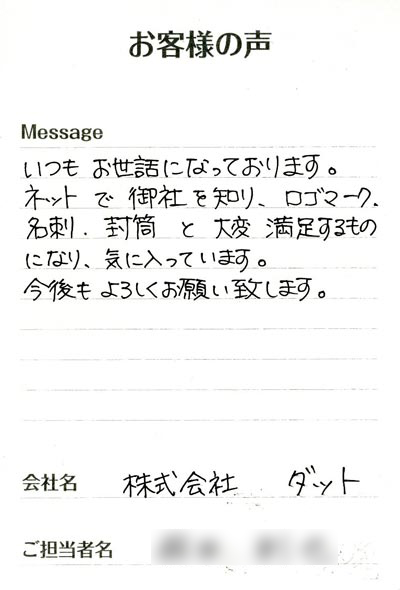 お客様の声
Message
いつも お世話になっております。
ネットで 御社を知り、ロゴマーク、
名刺、封筒 と 大変 満足するもの
になり、気に入っています。
今後も よろしくお願い致します。
会社名 株式会社 ダット
ご担当者名